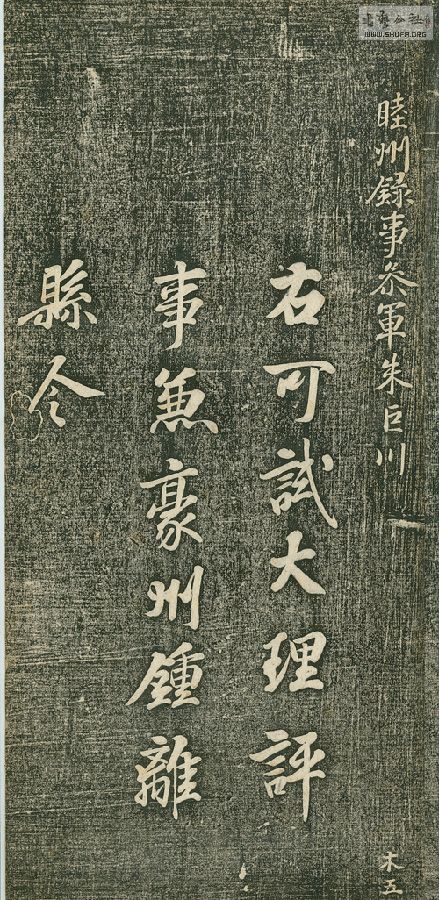 睦州録事叅軍朱巨川
右可試大理評
事兼豪州鍾離
縣令
木五
WWW.SHUFA.ORG